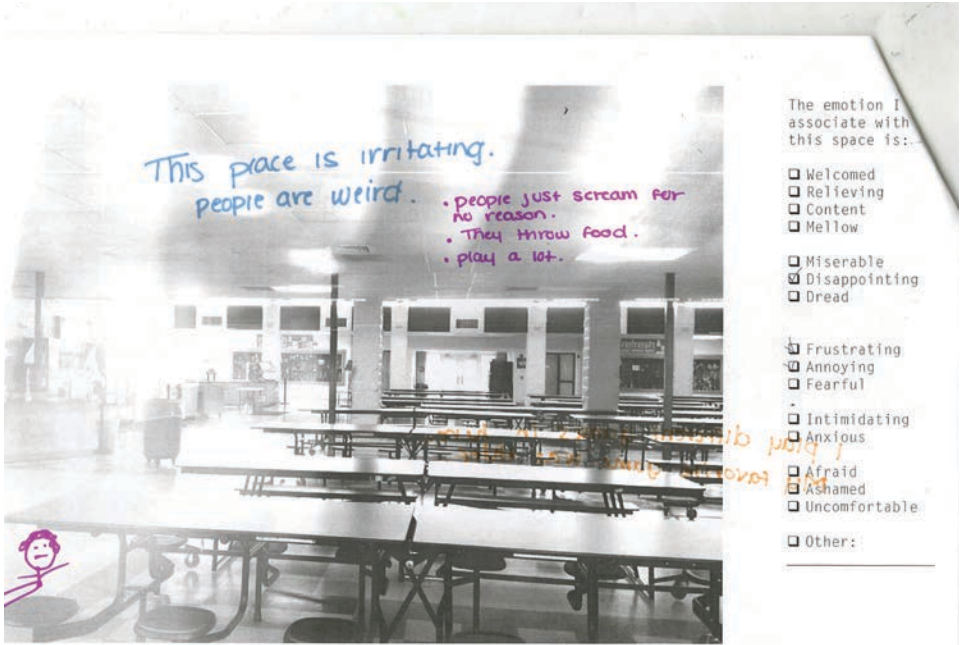 This place is irritating.
people are weird.
• people just scream for
no reason.
• They throw food.
• play a lot.
refresh
The emotion I
associate with
this space is:
☐ Welcomed
☐ Relieving
☐ Content
☐ Mellow
☐ Miserable
☑ Disappointing
☐ Dread
☑ Frustrating
☑ Annoying
☐ Fearful
☐ Intimidating
☐ Anxious
☐ Afraid
☐ Ashamed
☐ Uncomfortable
☐ Other:
I play different
my favorite game